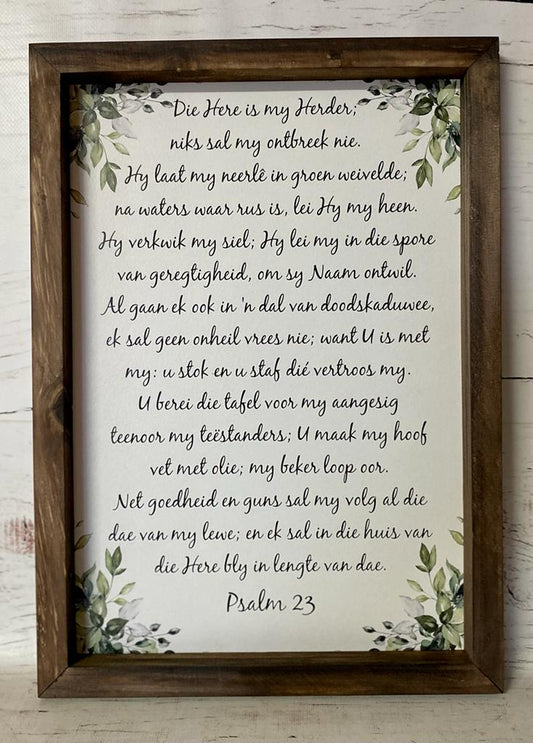 Die Here is my Herder;
niks sal my ontbreek nie.
Hy laat my neerlê in groen weivelde;
na waters waar rus is, lei Hy my heen.
Hy verkwik my siel; Hy lei my in die spore
van geregtigheid, om sy Naam ontwil.
Al gaan ek ook in 'n dal van doodskaduwee,
ek sal geen onheil vrees nie; want U is met
my: u stok en u staf dié vertroos my.
U berei die tafel voor my aangesig
teenoor my teëstanders; U maak my hoof
vet met olie; my beker loop oor.
Net goedheid en guns sal my volg al die
dae van my lewe; en ek sal in die huis van
die Here bly in lengte van dae.
Psalm 23